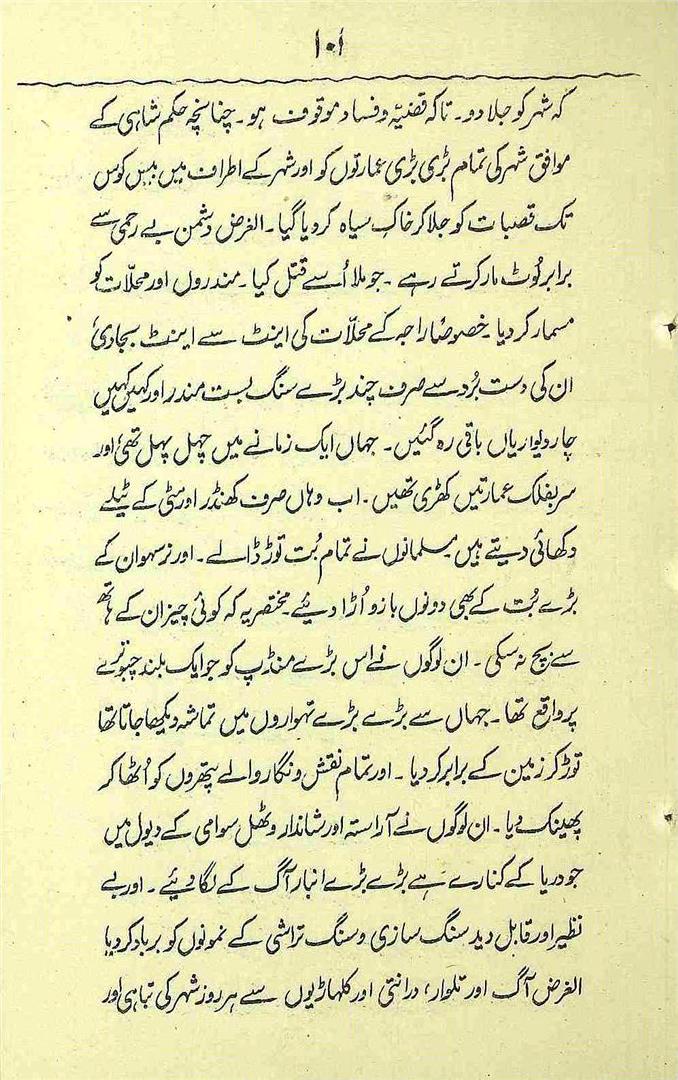 ۱۰۱
کہ شہر کو جلا دو۔ تاکہ قضیہ و فساد موقوف ہو۔ چنانچہ حکم شاہی کے
موافق شہر کی تمام بڑی بڑی عمارتوں کو اور شہر کے اطراف میں بیس کوس
تک قصبات کو جلا کر خاک سیاہ کر دیا گیا۔ الغرض دشمن بے رحمی سے
برابر لُوٹ مار کرتے رہے ۔ جو ملا اُسے قتل کیا ۔ مندروں اور محلّات کو
مسمار کر دیا ۔ خصوصاً راجہ کے محلّات کی اینٹ سے اینٹ بجا دی
ان کی دست بُرد سے صرف چند بڑے سنگ بست مندر اور کہیں کہیں
چار دیواریاں باقی رہ گئیں ۔ جہاں ایک زمانے میں چہل پہل تھی اور
سر بفلک عمارتیں کھڑی تھیں ۔ اب وہاں صرف کھنڈر اور مٹی کے ٹیلے
دکھائی دیتے ہیں مسلمانوں نے تمام بُت توڑ ڈالے ۔ اور نرسہوان کے
بڑے بُت کے بھی دونوں بازو اُڑا دیئے۔ مختصر یہ کہ کوئی چیز ان کے ہاتھ
سے بچ نہ سکی ۔ ان لوگوں نے اس بڑے منڈپ کو جو ایک بلند چبوترے
پر واقع تھا ۔ جہاں سے بڑے بڑے تہواروں میں تماشہ دیکھا جاتا تھا
توڑ کر زمین کے برابر کر دیا ۔ اور تمام نقش و نگار والے پتھروں کو اُٹھا کر
پھینک دیا ۔ ان لوگوں نے آراستہ اور شاندار وٹھل سوامی کے دیول میں
جو دریا کے کنارے ہے بڑے بڑے انبار آگ کے لگا دیئے ۔ اور بے
نظیر اور قابل دید سنگ سازی و سنگ تراشی کے نمونوں کو برباد کر دیا
الغرض آگ اور تلوار، درانتی اور کلہاڑیوں سے ہر روز شہر کی تباہی اور